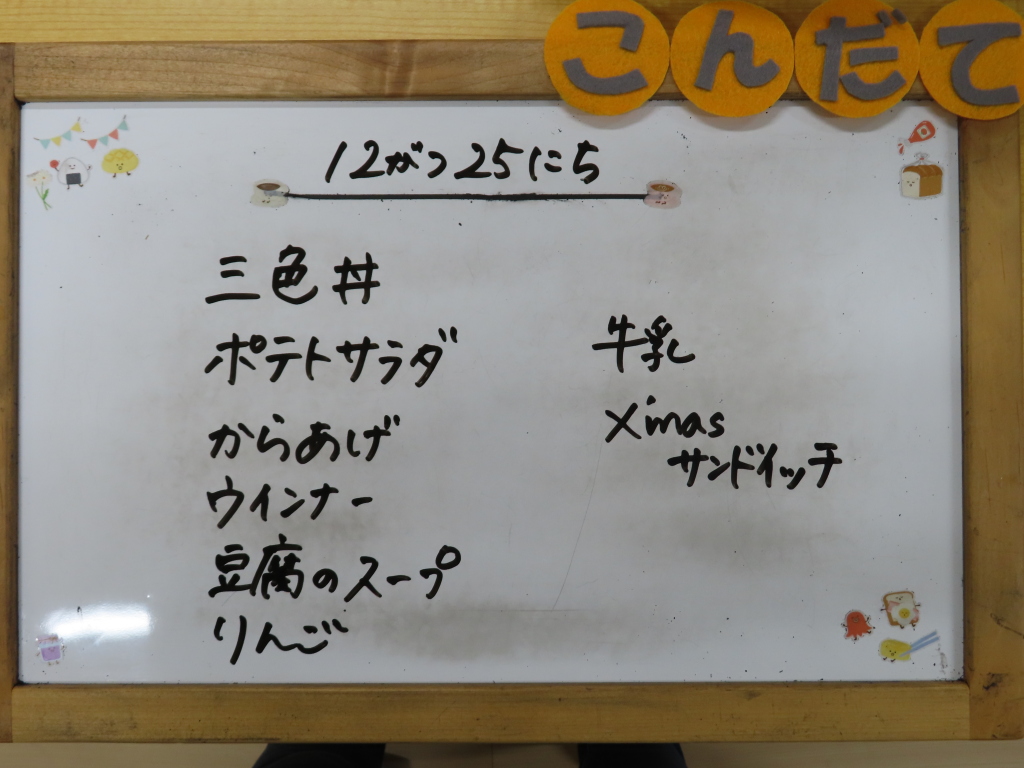 こんだて
12がつ25にち
三色丼
ポテトサラダ
からあげ
ウインナー
豆腐のスープ
りんご
牛乳
X'mas
サンドイッチ